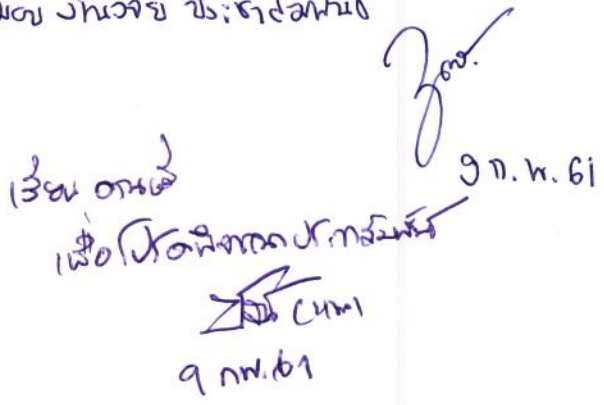 มอบ งานวิจัย ประชาสัมพันธ์
9 ก.พ. 61
เรียน คณบดี
เพื่อโปรดพิจารณาประชาสัมพันธ์
9 กพ. 61